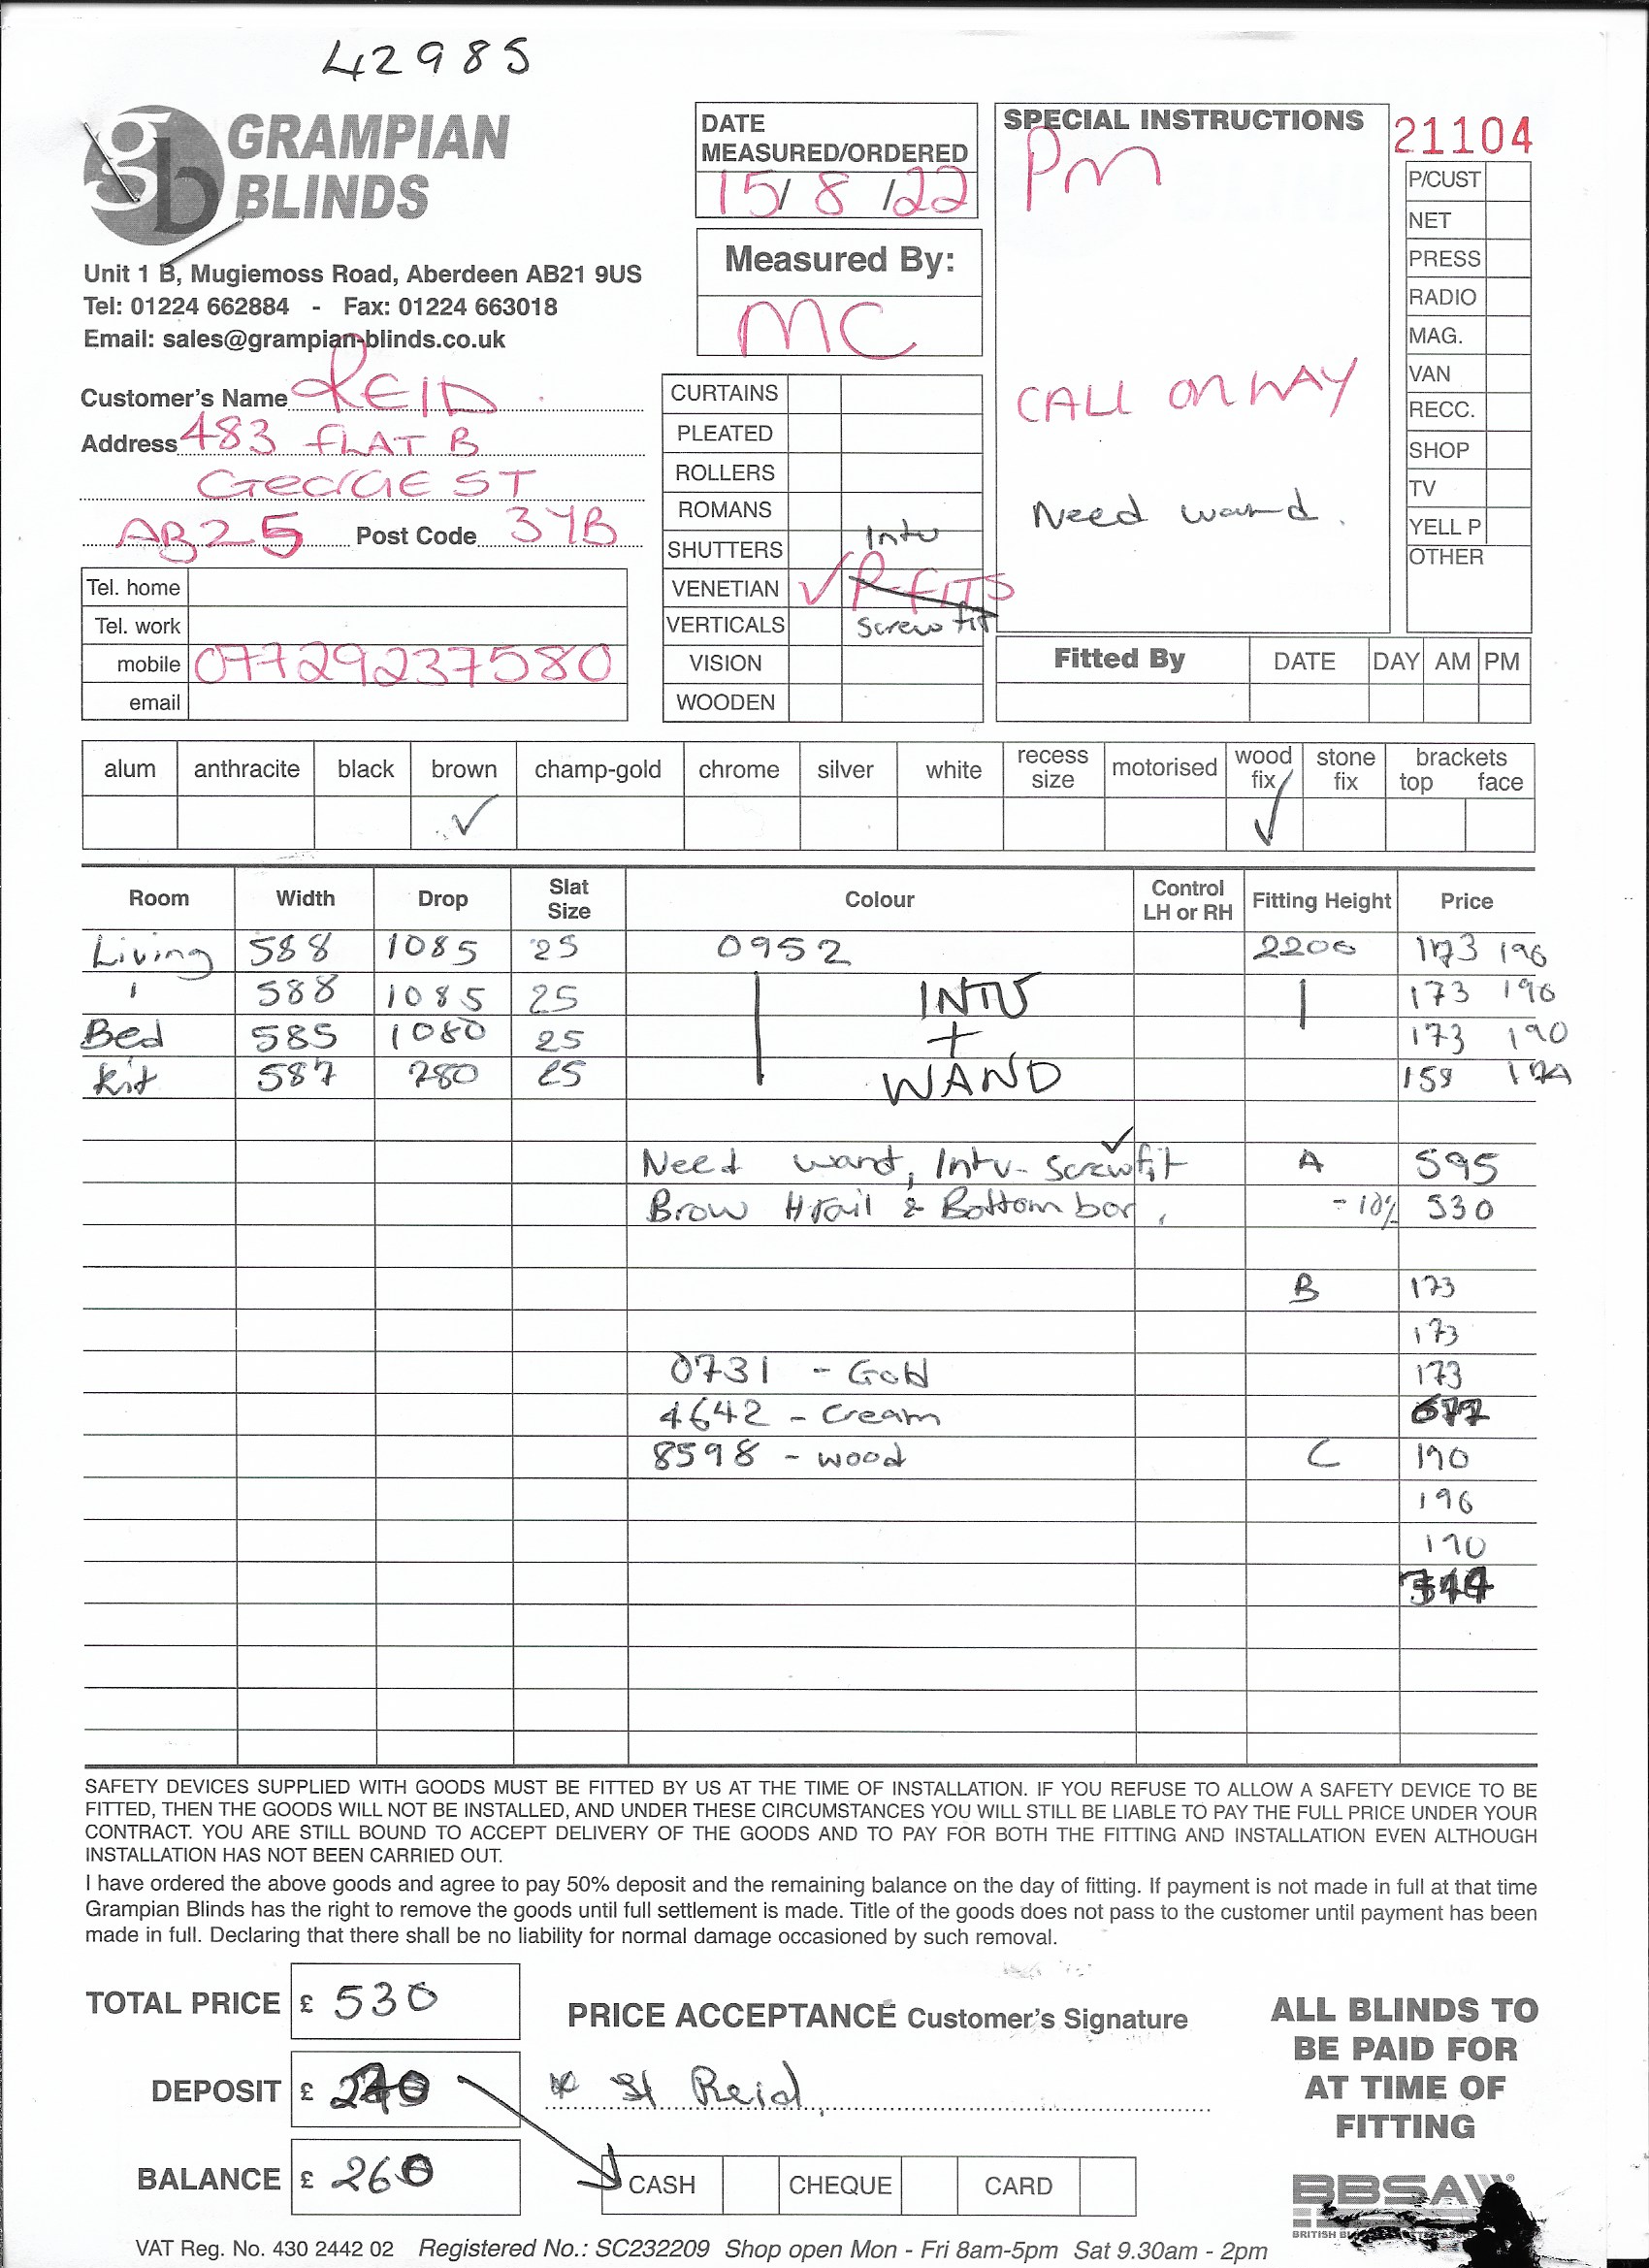 42985
GRAMPIAN
BLINDS
Unit 1 B, Mugiemoss Road, Aberdeen AB21 9US
Tel: 01224 662884 - Fax: 01224 663018
Email: sales@grampian-blinds.co.uk
Customer's Name REID
Address 483 FLAT B
GEORGE ST
AB25 Post Code 3YB
Tel. home
Tel. work
mobile 07729237580
email
DATE
MEASURED/ORDERED
15/ 8 /22
Measured By:
MC
CURTAINS
PLEATED
ROLLERS
ROMANS
SHUTTERS Intu
VENETIAN ✓ P-FITS
VERTICALS Screw fit
VISION
WOODEN
SPECIAL INSTRUCTIONS
PM
CALL ON WAY
Need wand.
21104
P/CUST
NET
PRESS
RADIO
MAG.
VAN
RECC.
SHOP
TV
YELL P
OTHER
Fitted By DATE DAY AM PM
alum anthracite black brown champ-gold chrome silver white recess size motorised wood fix stone fix brackets top face
✓ ✓
Room Width Drop Slat Size Colour Control LH or RH Fitting Height Price
Living 588 1085 25 0952 2200 173 196
588 1085 25 INTU 173 196
Bed 585 1080 25 + 173 190
Kit 587 780 25 WAND 158
Need wand, Intu- Screwfit ✓ A 595
Brow Hrail & Bottom bar, - 10% 530
B 173
173
0731 - Gold 173
4642 - Cream
8598 - wood C 190
196
190
SAFETY DEVICES SUPPLIED WITH GOODS MUST BE FITTED BY US AT THE TIME OF INSTALLATION. IF YOU REFUSE TO ALLOW A SAFETY DEVICE TO BE
FITTED, THEN THE GOODS WILL NOT BE INSTALLED, AND UNDER THESE CIRCUMSTANCES YOU WILL STILL BE LIABLE TO PAY THE FULL PRICE UNDER YOUR
CONTRACT. YOU ARE STILL BOUND TO ACCEPT DELIVERY OF THE GOODS AND TO PAY FOR BOTH THE FITTING AND INSTALLATION EVEN ALTHOUGH
INSTALLATION HAS NOT BEEN CARRIED OUT.
I have ordered the above goods and agree to pay 50% deposit and the remaining balance on the day of fitting. If payment is not made in full at that time
Grampian Blinds has the right to remove the goods until full settlement is made. Title of the goods does not pass to the customer until payment has been
made in full. Declaring that there shall be no liability for normal damage occasioned by such removal.
TOTAL PRICE £ 530
DEPOSIT £
BALANCE £ 260
PRICE ACCEPTANCE Customer's Signature
Reid
CASH CHEQUE CARD
ALL BLINDS TO
BE PAID FOR
AT TIME OF
FITTING
BBSA
BRITISH
VAT Reg. No. 430 2442 02 Registered No.: SC232209 Shop open Mon - Fri 8am-5pm Sat 9.30am - 2pm